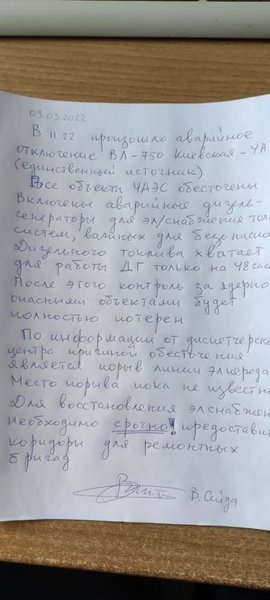 09.03.2022
В 11.22 произошло аварийное
отключение ВЛ-750 Киевская - ЧА
(единственный источник)
Все объекты ЧАЭС обесточены
Включены аварийные дизель-
генераторы для эл/снабжения тол
систем, важных для безопасно
Дизельного топлива хватает
для работы ДГ только на 48 час
После этого контроль за ядерно
опасными объектами будет
полностью потерян
По информации от диспетчерско
центра причиной обесточения
является порыв линии эл.переда
Место порыва пока не известн
Для восстановления эл.снабжен
необходимо срочно! предостави
коридоры для ремонтных
бригад
В. Сейда